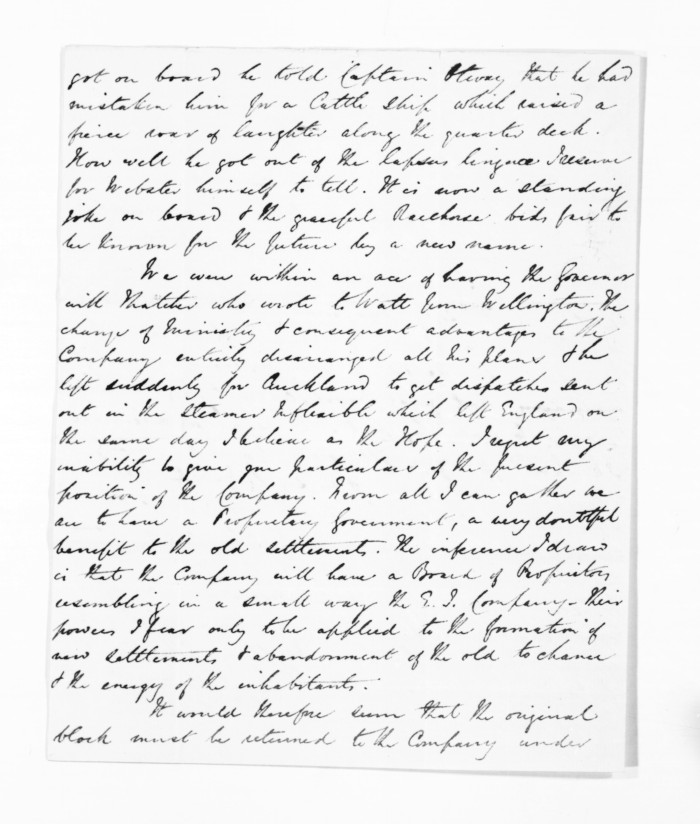 got on board he told Captain Otway that he had
mistaken him for a Cattle Ship which raised a
fierce roar of laughter along the quarter deck.
How well he got out of the lapsus linguæ I reserve
for Webster himself to tell. It is now a standing
joke on board & the graceful Racehorse bids fair to
be known for the future by a new name.
We were within an ace of having the Governor
will Thatcher who wrote to Watt from Wellington. The
change of Ministry & consequent advantages to the
Company entirely disarranged all his plans & he
left suddenly for Auckland to get dispatches sent
out in the steamer Inflexible which left England on
the same day I believe as the Hope. I regret my
inability to give you particulars of the present
position of the Company. From all I can gather we
are to have a Proprietary Government, a very doubtful
benefit to the old settlements. The inference I draw
is that the Company will have a Board of Proprietors
resembling in a small way the E. I. Company - Their
powers I fear only to be applied to the formation of
new settlements & abandonment of the old to chance
& the energy of the inhabitants.
It would therefore seem that the original
block must be returned to the Company under